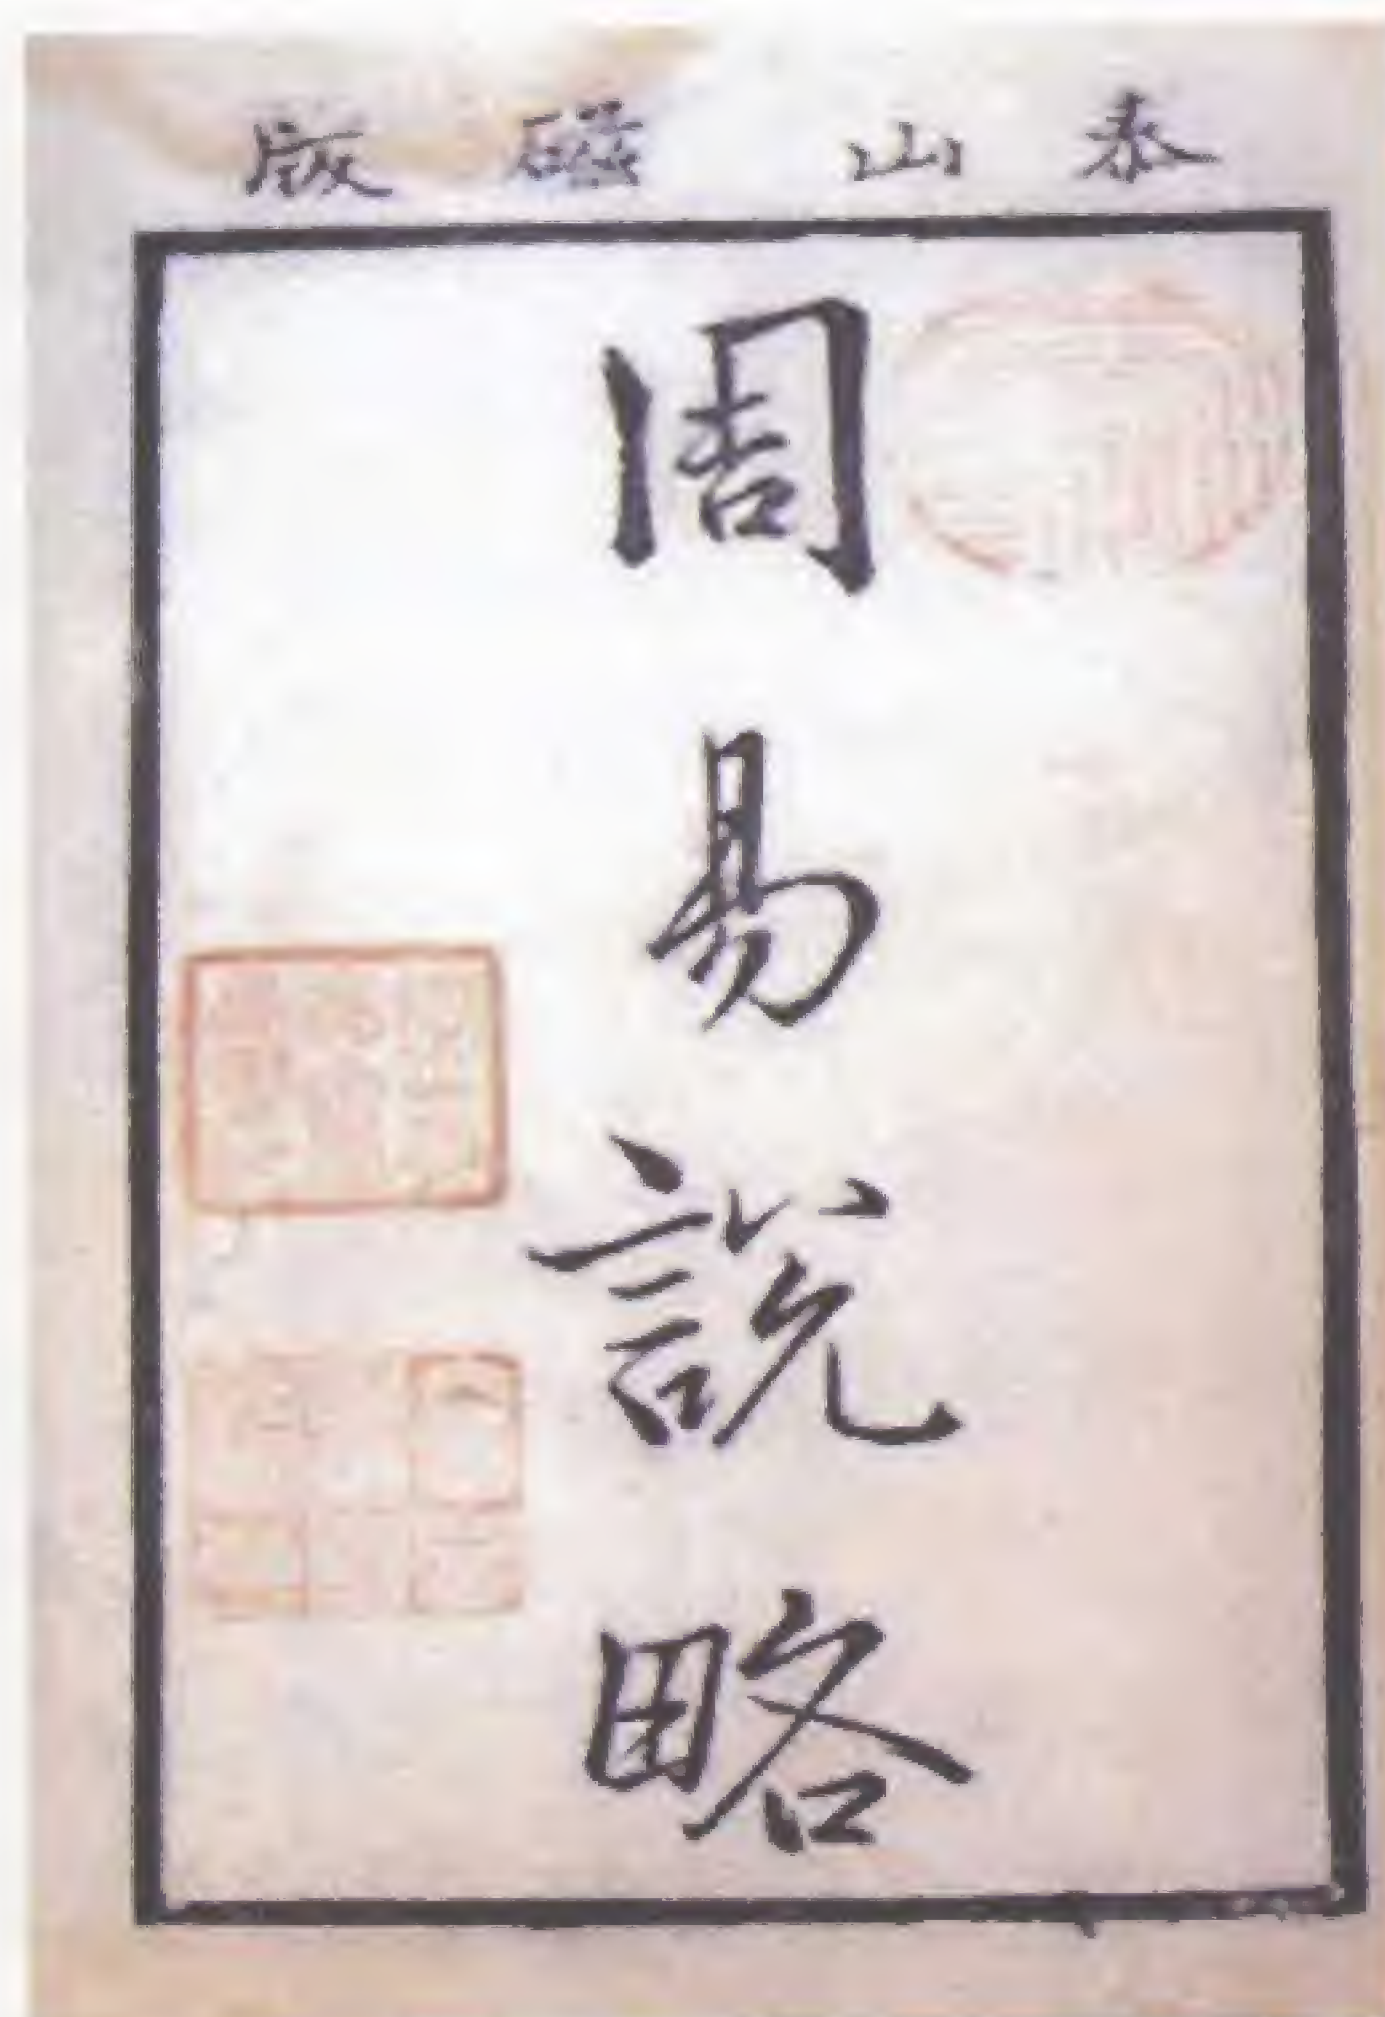 泰山磁版
周易說略